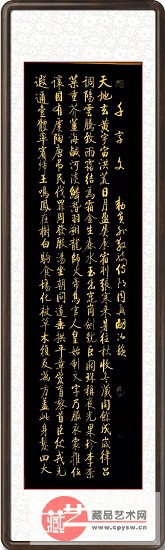 千字文 勅員外散騎侍郎周興嗣次韻
天地玄黃宇宙洪荒日月盈昃辰宿列張寒來暑往秋收冬藏閏餘成歲律呂
調陽雲騰致雨露結為霜金生麗水玉出崑岡劍號巨闕珠稱夜光果珍李柰
菜重芥薑海鹹河淡鱗潛羽翔龍師火帝鳥官人皇始制文字乃服衣裳推位
讓國有虞陶唐弔民伐罪周發殷湯坐朝問道垂拱平章愛育黎首臣伏戎羌
遐邇壹體率賓歸王鳴鳳在樹白駒食場化被草木賴及萬方蓋此身髮四大
藏艺
藏品艺术网
www.cpysw.cn